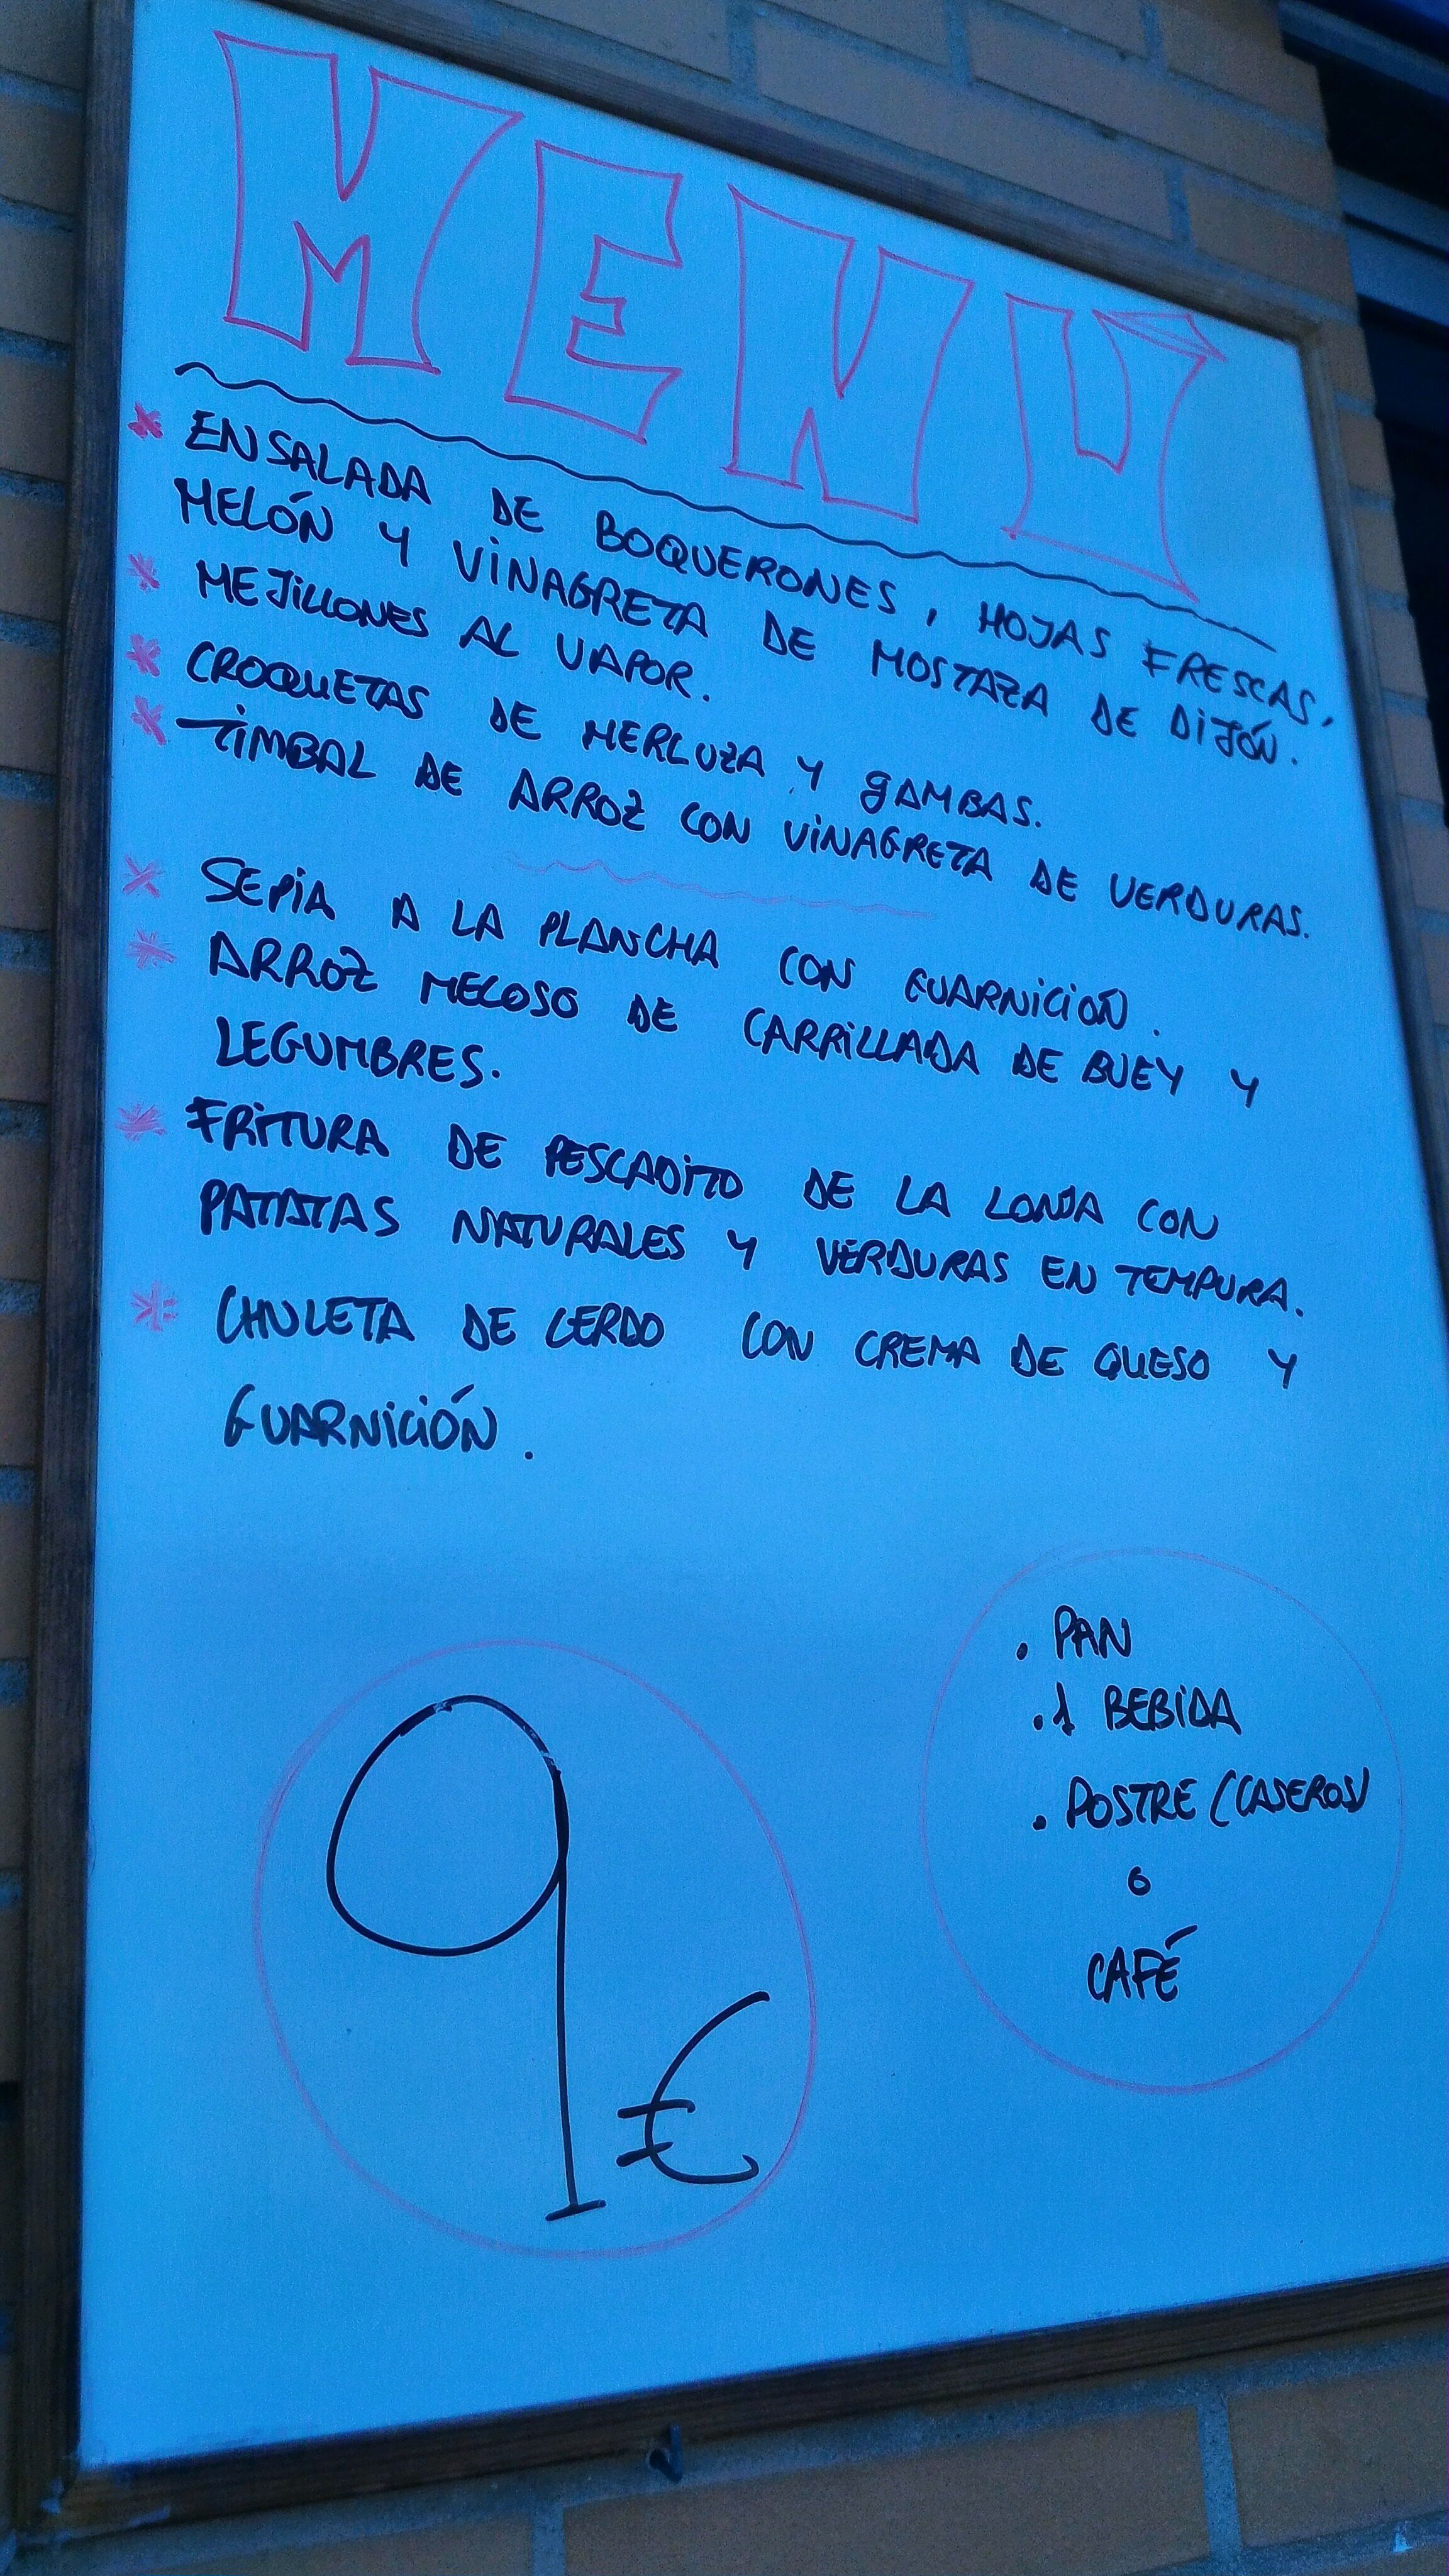 MENÚ
* ENSALADA DE BOQUERONES, HOJAS FRESCAS,
MELÓN Y VINAGRETA DE MOSTAZA DE DIJÓN.
* MEJILLONES AL VAPOR.
* CROQUETAS DE MERLUZA Y GAMBAS.
* TIMBAL DE ARROZ CON VINAGRETA DE VERDURAS.
* SEPIA A LA PLANCHA CON GUARNICIÓN.
* ARROZ MELOSO DE CARRILLADA DE BUEY Y
LEGUMBRES.
* FRITURA DE PESCADITO DE LA LONJA CON
PATATAS NATURALES Y VERDURAS EN TEMPURA.
* CHULETA DE CERDO CON CREMA DE QUESO Y
GUARNICIÓN.
9€
. PAN
. 1 BEBIDA
. POSTRE (CASEROS)
O
CAFÉ